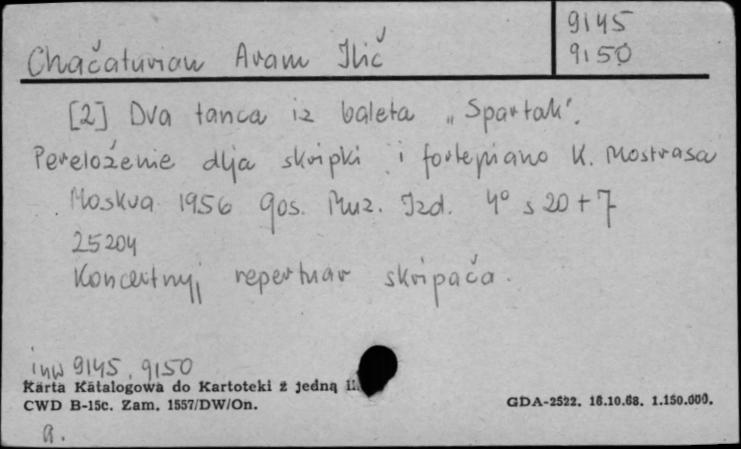 9145
Chačaturian Aram Ilič
9150
[2] Dva tanca iz baleta „Spartak".
Pereloženie dlja skripki i fortepiano K. Mostrasa
Moskva 1956 Gos. Muz. Izd. 4° s 20 + 7
25204
Koncertnyj repertuar skripača.
inw 9145, 9150
Karta Katalogowa do Kartoteki z jedną
CWD B-15c. Zam. 1557/DW/On.
GDA-2522. 18.10.68. 1.150.000.
a.